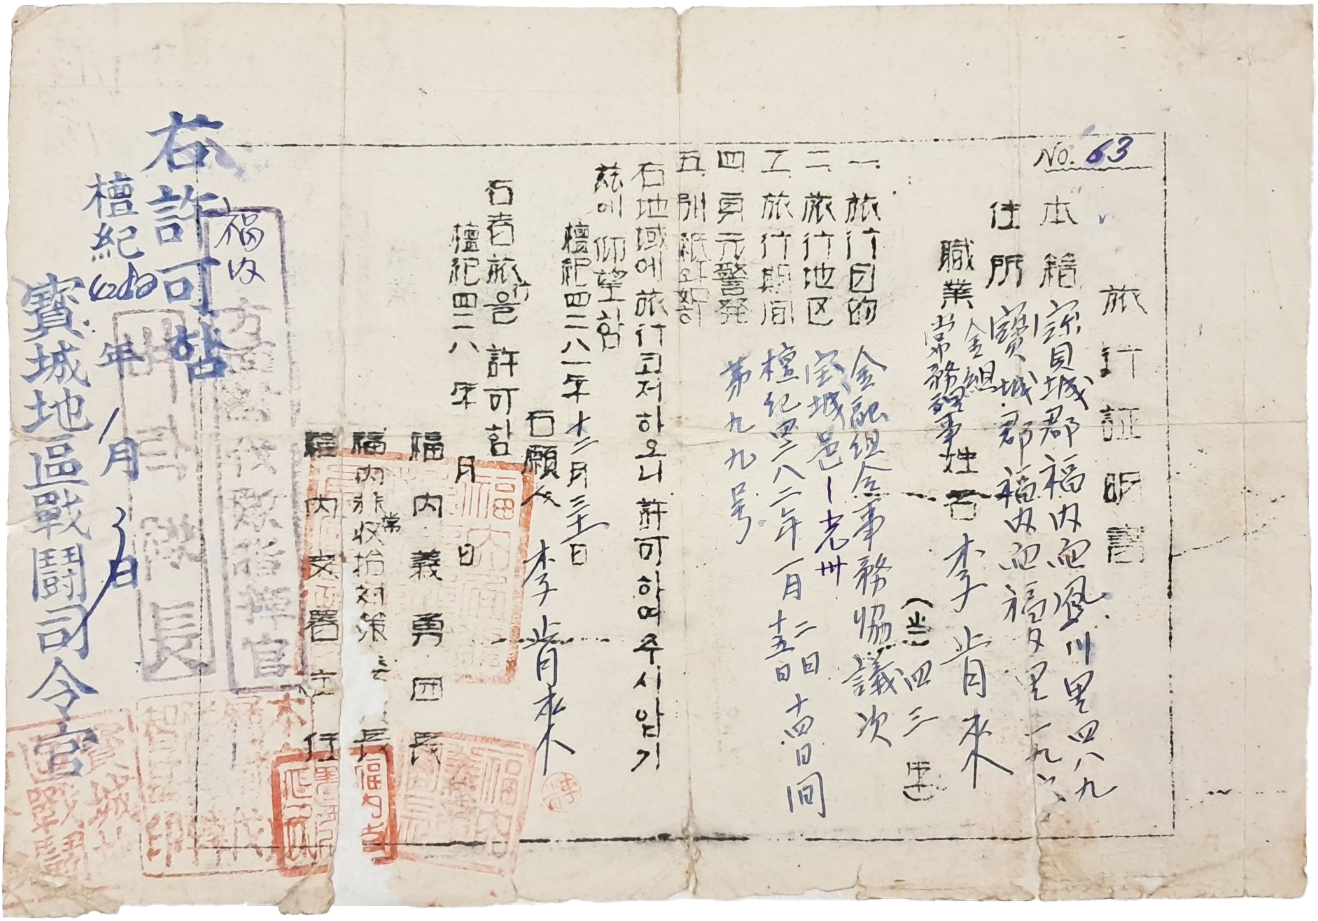 No. 63
旅行証明書
本籍 寳城郡福内面鳳川里四八九
住所 寳城郡福内面福内里一九
職業 金組常務理事 姓名 李肯來
(当 四三 才)
一. 旅行目的 金融組合事務協議次
二. 旅行地区 宝城邑-光州
三. 旅行期间 檀紀四二八二年一月二日 十五日 十四日间
四. 身元警発 第九九号
五. 別紙
右地域에 旅行코저하오니 許可하여주시압기
玆에 仰望함
檀紀四二八一年十二月三十一日
右願人 李肯來
右者旅行을 許可함
檀紀四二八 年 月 日
福内義勇団長
福内非常收拾対策 長
福内支署主任
福内
方面 代 隊指揮官
隊長
右許可함
檀紀4282年1月3日
寳城地區戰鬪司令官